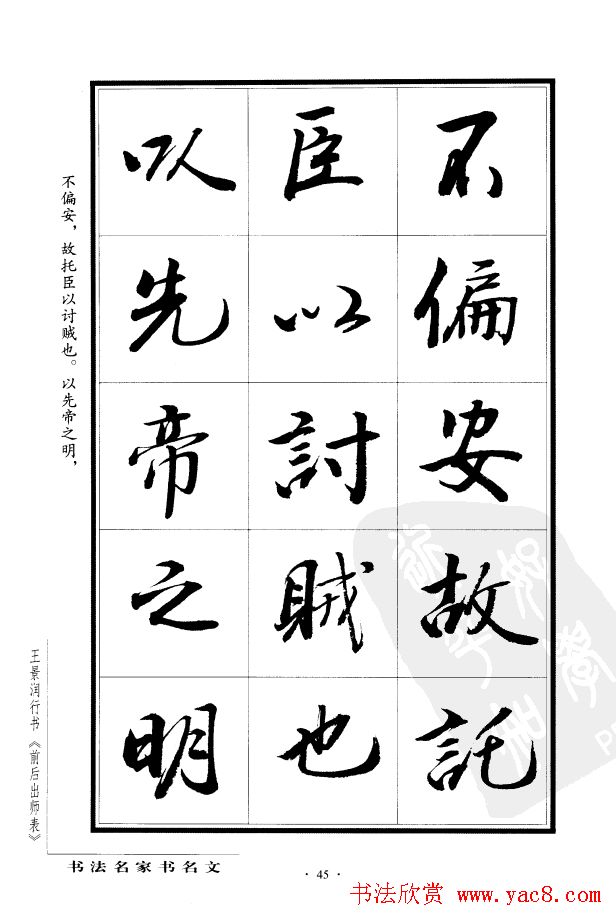 不偏安故託
臣以討賊也
以先帝之明
不偏安，故托臣以讨贼也。以先帝之明，
王景润行书《前后出师表》
书法名家书名文
·45·
书法欣赏 www.yac8.com